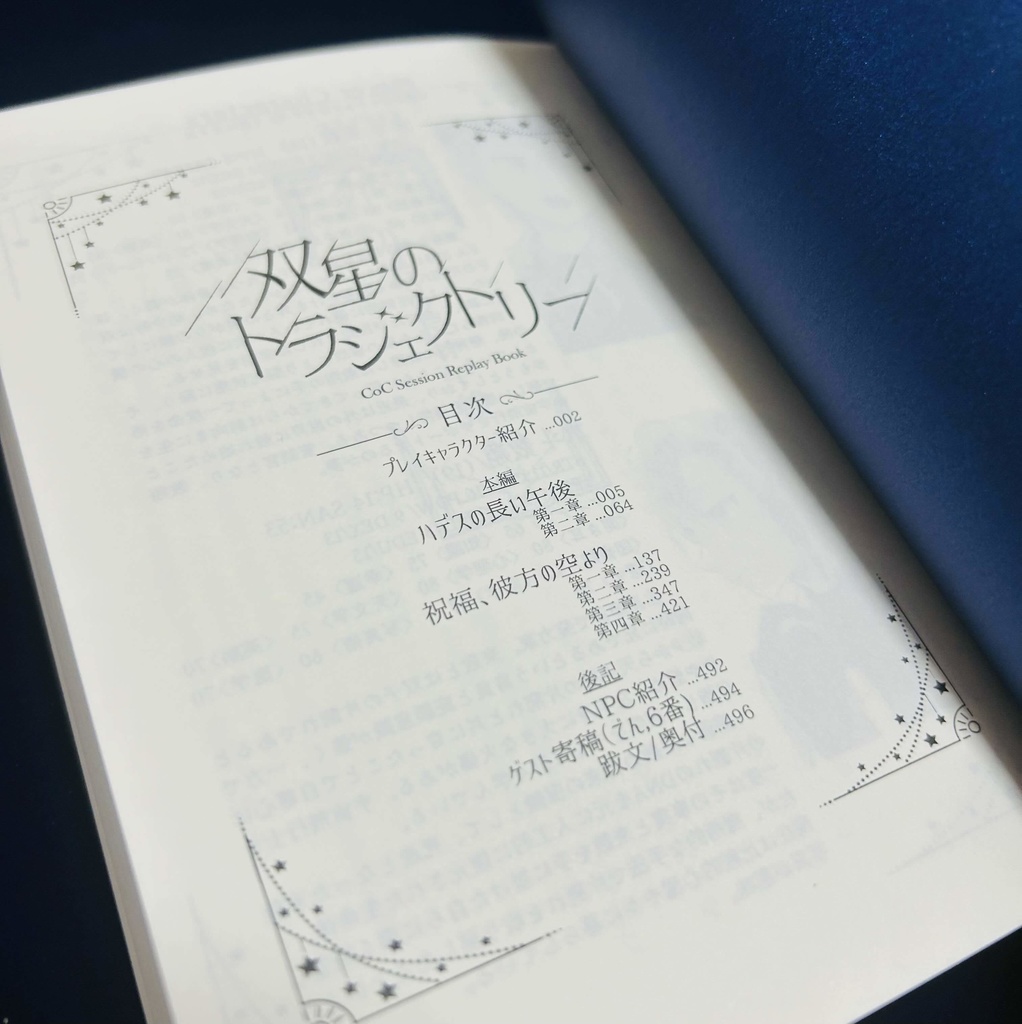 双星の
トラジェクトリー
CoC Session Replay Book
目次
プレイキャラクター紹介 ...002
本編
ハデスの長い午後
第一章 ...005
第二章 ...064
祝福、彼方の空より
第一章 ...137
第二章 ...239
第三章 ...347
第四章 ...421
後記
NPC紹介 ...492
ゲスト寄稿(でん,6番) ...494
跋文/奥付 ...496